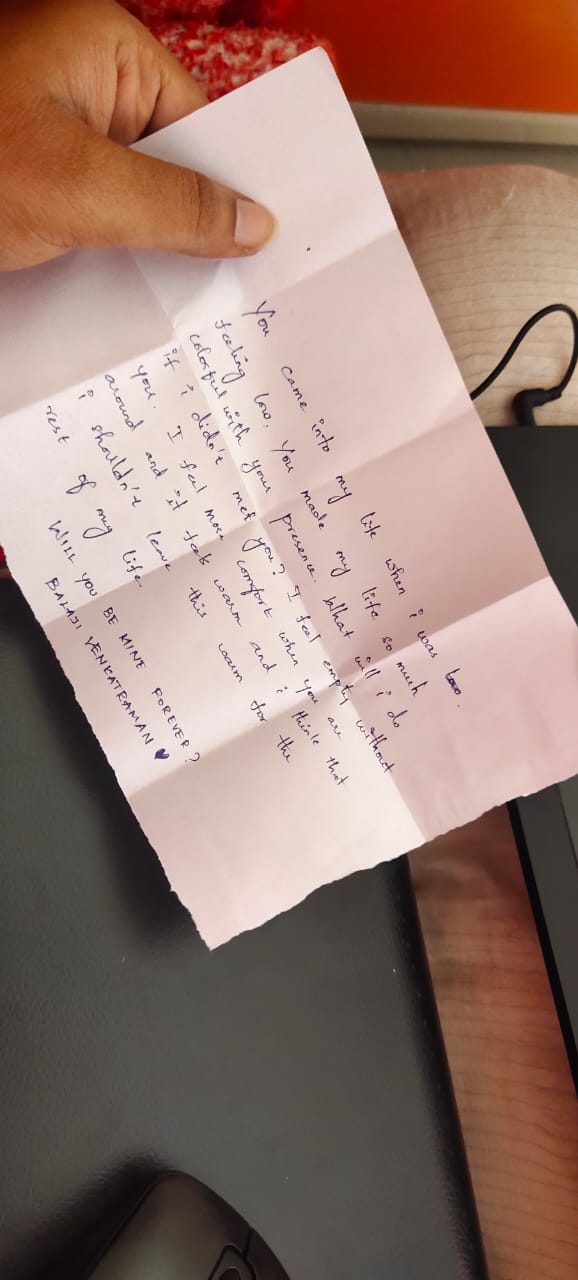 You came into my life when i was
feeling low. You made my life so much
colorful with your presence. What will i do
if i didn't met you? I feel empty without
you. I feel more comfort when you are
around and it feels warm and i think that
i shouldn't leave this warm for the
rest of my life.
WILL YOU BE MINE FOREVER?
BALAJI VENKATRAMAN ♥